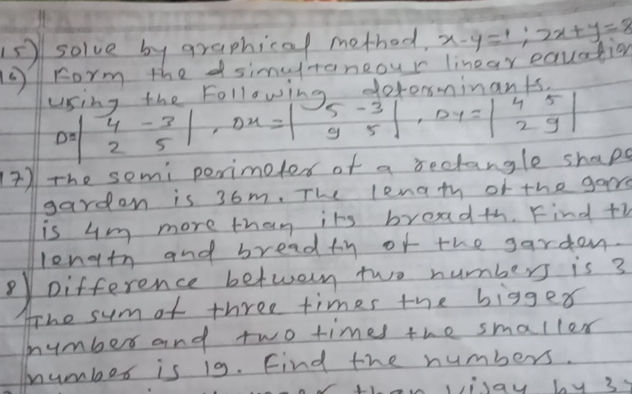 15) solve by graphical method. x-y=1 ; 2x+y=8
16) Form the simultaneous linear equation
using the Following determinants.
D=| 4 -3 | , Dx=| 5 -3 | , Dy=| 4 5 |
2 5 9 5 2 9
17) The semi perimeter of a rectangle shape
garden is 36m. The length of the gard
is 4m more than its breadth. Find th
length and breadth of the garden.
8) Difference between two numbers is 3
The sum of three times the bigger
number and two times the smaller
number is 19. Find the numbers.
than Vijay by 3